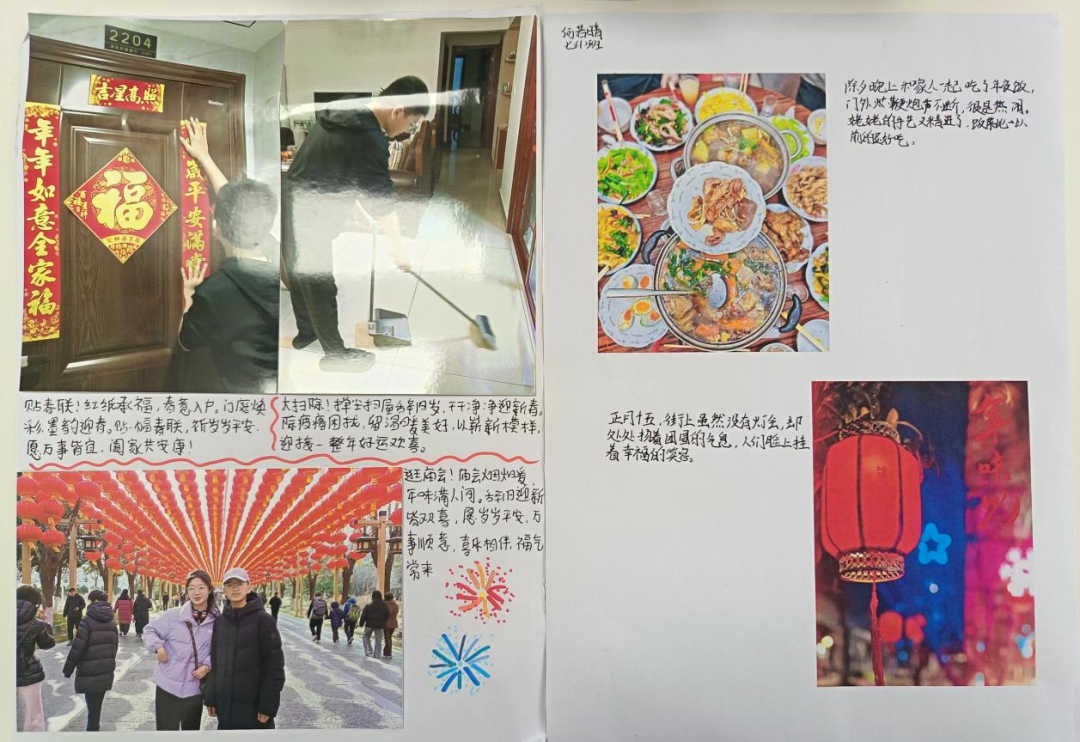 2204
吉星高照
年年如意全家福
岁平安满
福
贴春联！红纸承福，春意入户。门庭焕
彩，墨韵迎春。贴一幅春联，祈岁岁平安，
愿万事皆宜，阖家共安康！
大扫除！掸尘扫屑辞旧岁，干干净净迎新春。
除疲惫困扰，留温暖美好，以崭新模样，
迎接一整年好运欢喜。
逛庙会！庙会烟火暖，
年味满人间。辞旧迎新
皆欢喜，愿岁岁平安，万
事顺意，喜乐相伴，福气
常来
何若晴
除夕晚上和家人一起吃了年夜饭，
门外炮声不断，很是热闹。
姥姥的手艺又精进了，做菜比以
前还好吃。
正月十五，街上虽然没有灯会，却
处处扬着团圆的气息，人们脸上挂
着幸福的笑容。